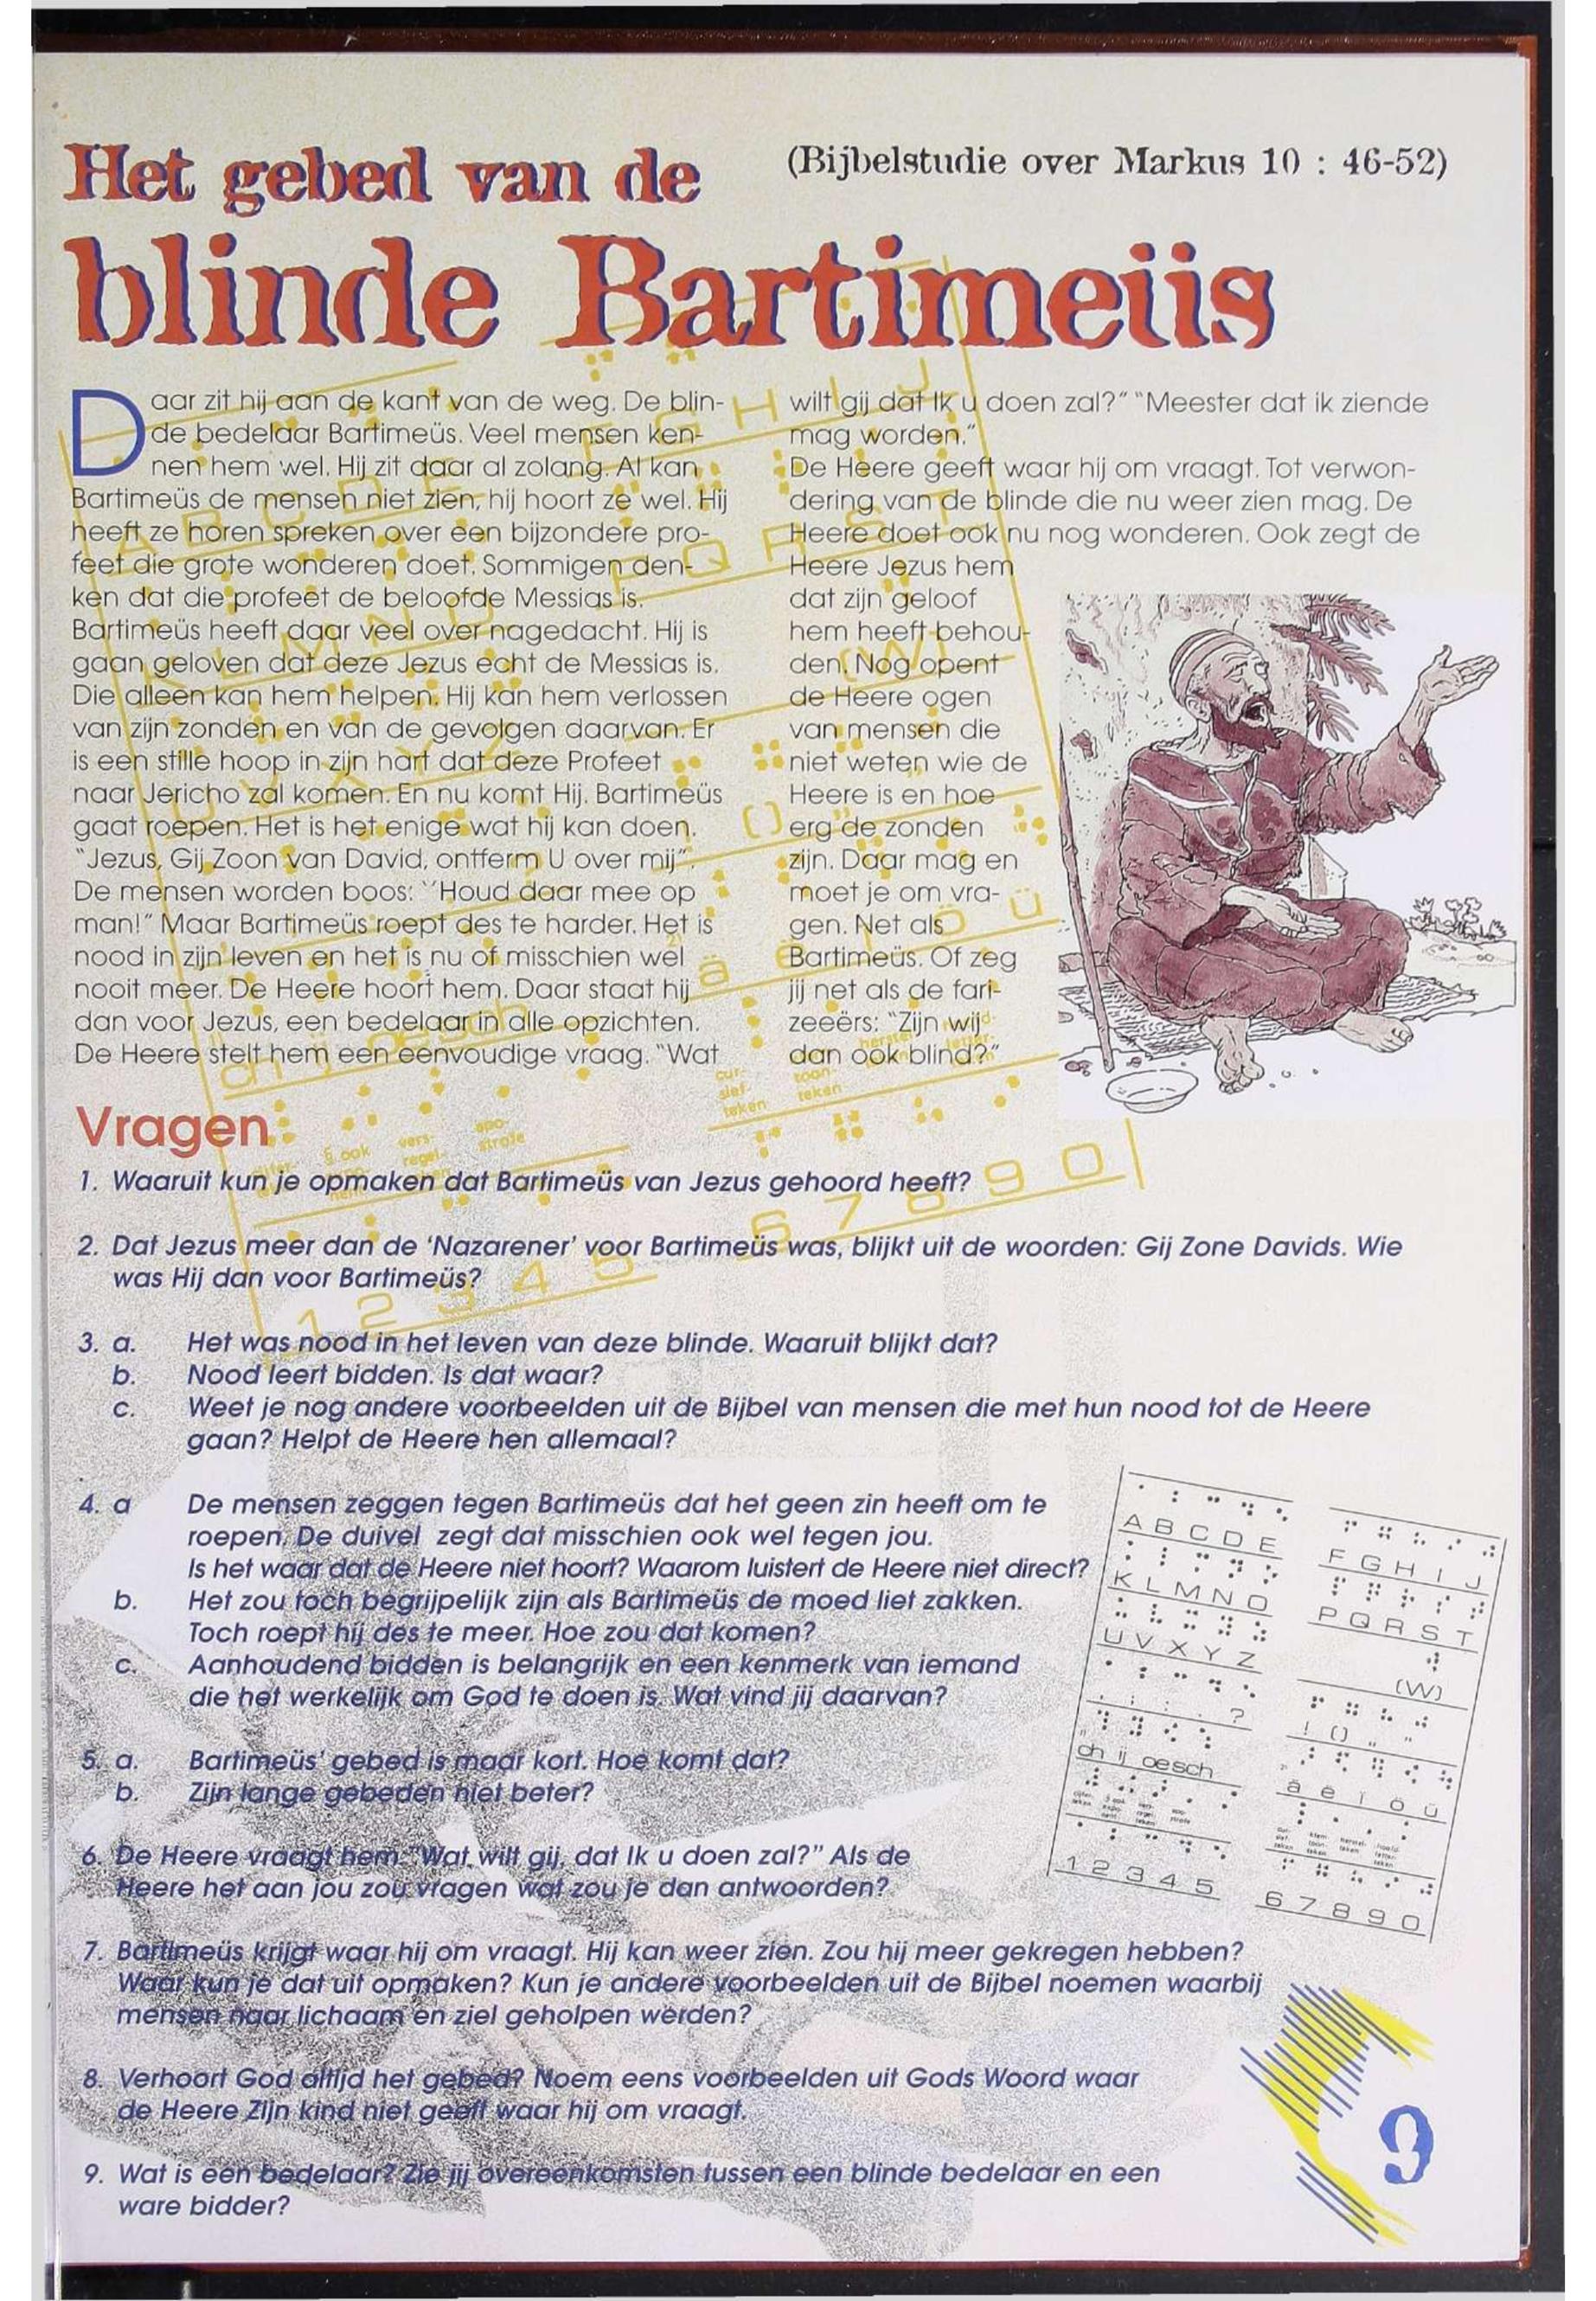 Het gebed van de
(Bijbelstudie over Markus 10 : 46-52)
blinde Bartimeüs
Daar zit hij aan de kant van de weg. De blin-
de bedelaar Bartimeüs. Veel mensen ken-
nen hem wel. Hij zit daar al zolang. Al kan
Bartimeüs de mensen niet zien, hij hoort ze wel. Hij
heeft ze horen spreken over een bijzondere pro-
feet die grote wonderen doet. Sommigen den-
ken dat die profeet de beloofde Messias is.
Bartimeüs heeft daar veel over nagedacht. Hij is
gaan geloven dat deze Jezus echt de Messias is.
Die alleen kan hem helpen. Hij kan hem verlossen
van zijn zonden en van de gevolgen daarvan. Er
is een stille hoop in zijn hart dat deze Profeet
naar Jericho zal komen. En nu komt Hij. Bartimeüs
gaat roepen. Het is het enige wat hij kan doen.
"Jezus, Gij Zoon van David, ontferm U over mij".
De mensen worden boos: ''Houd daar mee op
man!" Maar Bartimeüs roept des te harder. Het is
nood in zijn leven en het is nu of misschien wel
nooit meer. De Heere hoort hem. Daar staat hij
dan voor Jezus, een bedelaar in alle opzichten.
De Heere stelt hem een eenvoudige vraag. "Wat
wilt gij dat Ik u doen zal?" "Meester dat ik ziende
mag worden."
De Heere geeft waar hij om vraagt. Tot verwon-
dering van de blinde die nu weer zien mag. De
Heere doet ook nu nog wonderen. Ook zegt de
Heere Jezus hem
dat zijn geloof
hem heeft behou-
den. Nog opent
de Heere ogen
van mensen die
niet weten wie de
Heere is en hoe
erg de zonden
zijn. Daar mag en
moet je om vra-
gen. Net als
Bartimeüs. Of zeg
jij net als de fari-
zeeërs: "Zijn wij
dan ook blind?"
Vragen
1. Waaruit kun je opmaken dat Bartimeüs van Jezus gehoord heeft?
2. Dat Jezus meer dan de 'Nazarener' voor Bartimeüs was, blijkt uit de woorden: Gij Zone Davids. Wie
was Hij dan voor Bartimeüs?
3. a. Het was nood in het leven van deze blinde. Waaruit blijkt dat?
b. Nood leert bidden. Is dat waar?
c. Weet je nog andere voorbeelden uit de Bijbel van mensen die met hun nood tot de Heere
gaan? Helpt de Heere hen allemaal?
4. a De mensen zeggen tegen Bartimeüs dat het geen zin heeft om te
roepen. De duivel zegt dat misschien ook wel tegen jou.
Is het waar dat de Heere niet hoort? Waarom luistert de Heere niet direct?
b. Het zou toch begrijpelijk zijn als Bartimeüs de moed liet zakken.
Toch roept hij des te meer. Hoe zou dat komen?
c. Aanhoudend bidden is belangrijk en een kenmerk van iemand
die het werkelijk om God te doen is. Wat vind jij daarvan?
5. a. Bartimeüs' gebed is maar kort. Hoe komt dat?
b. Zijn lange gebeden niet beter?
6. De Heere vraagt hem: "Wat wilt gij, dat Ik u doen zal?" Als de
Heere het aan jou zou vragen wat zou je dan antwoorden?
7. Bartimeüs krijgt waar hij om vraagt. Hij kan weer zien. Zou hij meer gekregen hebben?
Waar kun je dat uit opmaken? Kun je andere voorbeelden uit de Bijbel noemen waarbij
mensen naar lichaam en ziel geholpen werden?
8. Verhoort God altijd het gebed? Noem eens voorbeelden uit Gods Woord waar
de Heere Zijn kind niet geeft waar hij om vraagt.
9. Wat is een bedelaar? Zie jij overeenkomsten tussen een blinde bedelaar en een
ware bidder?
A B C D E
F G H I J
K L M N O
P Q R S T
U V X Y Z
(W)
, ; : . ?
! () „ "
ch ij oe sch
ä ë ï ö ü
1 2 3 4 5
6 7 8 9 0
9